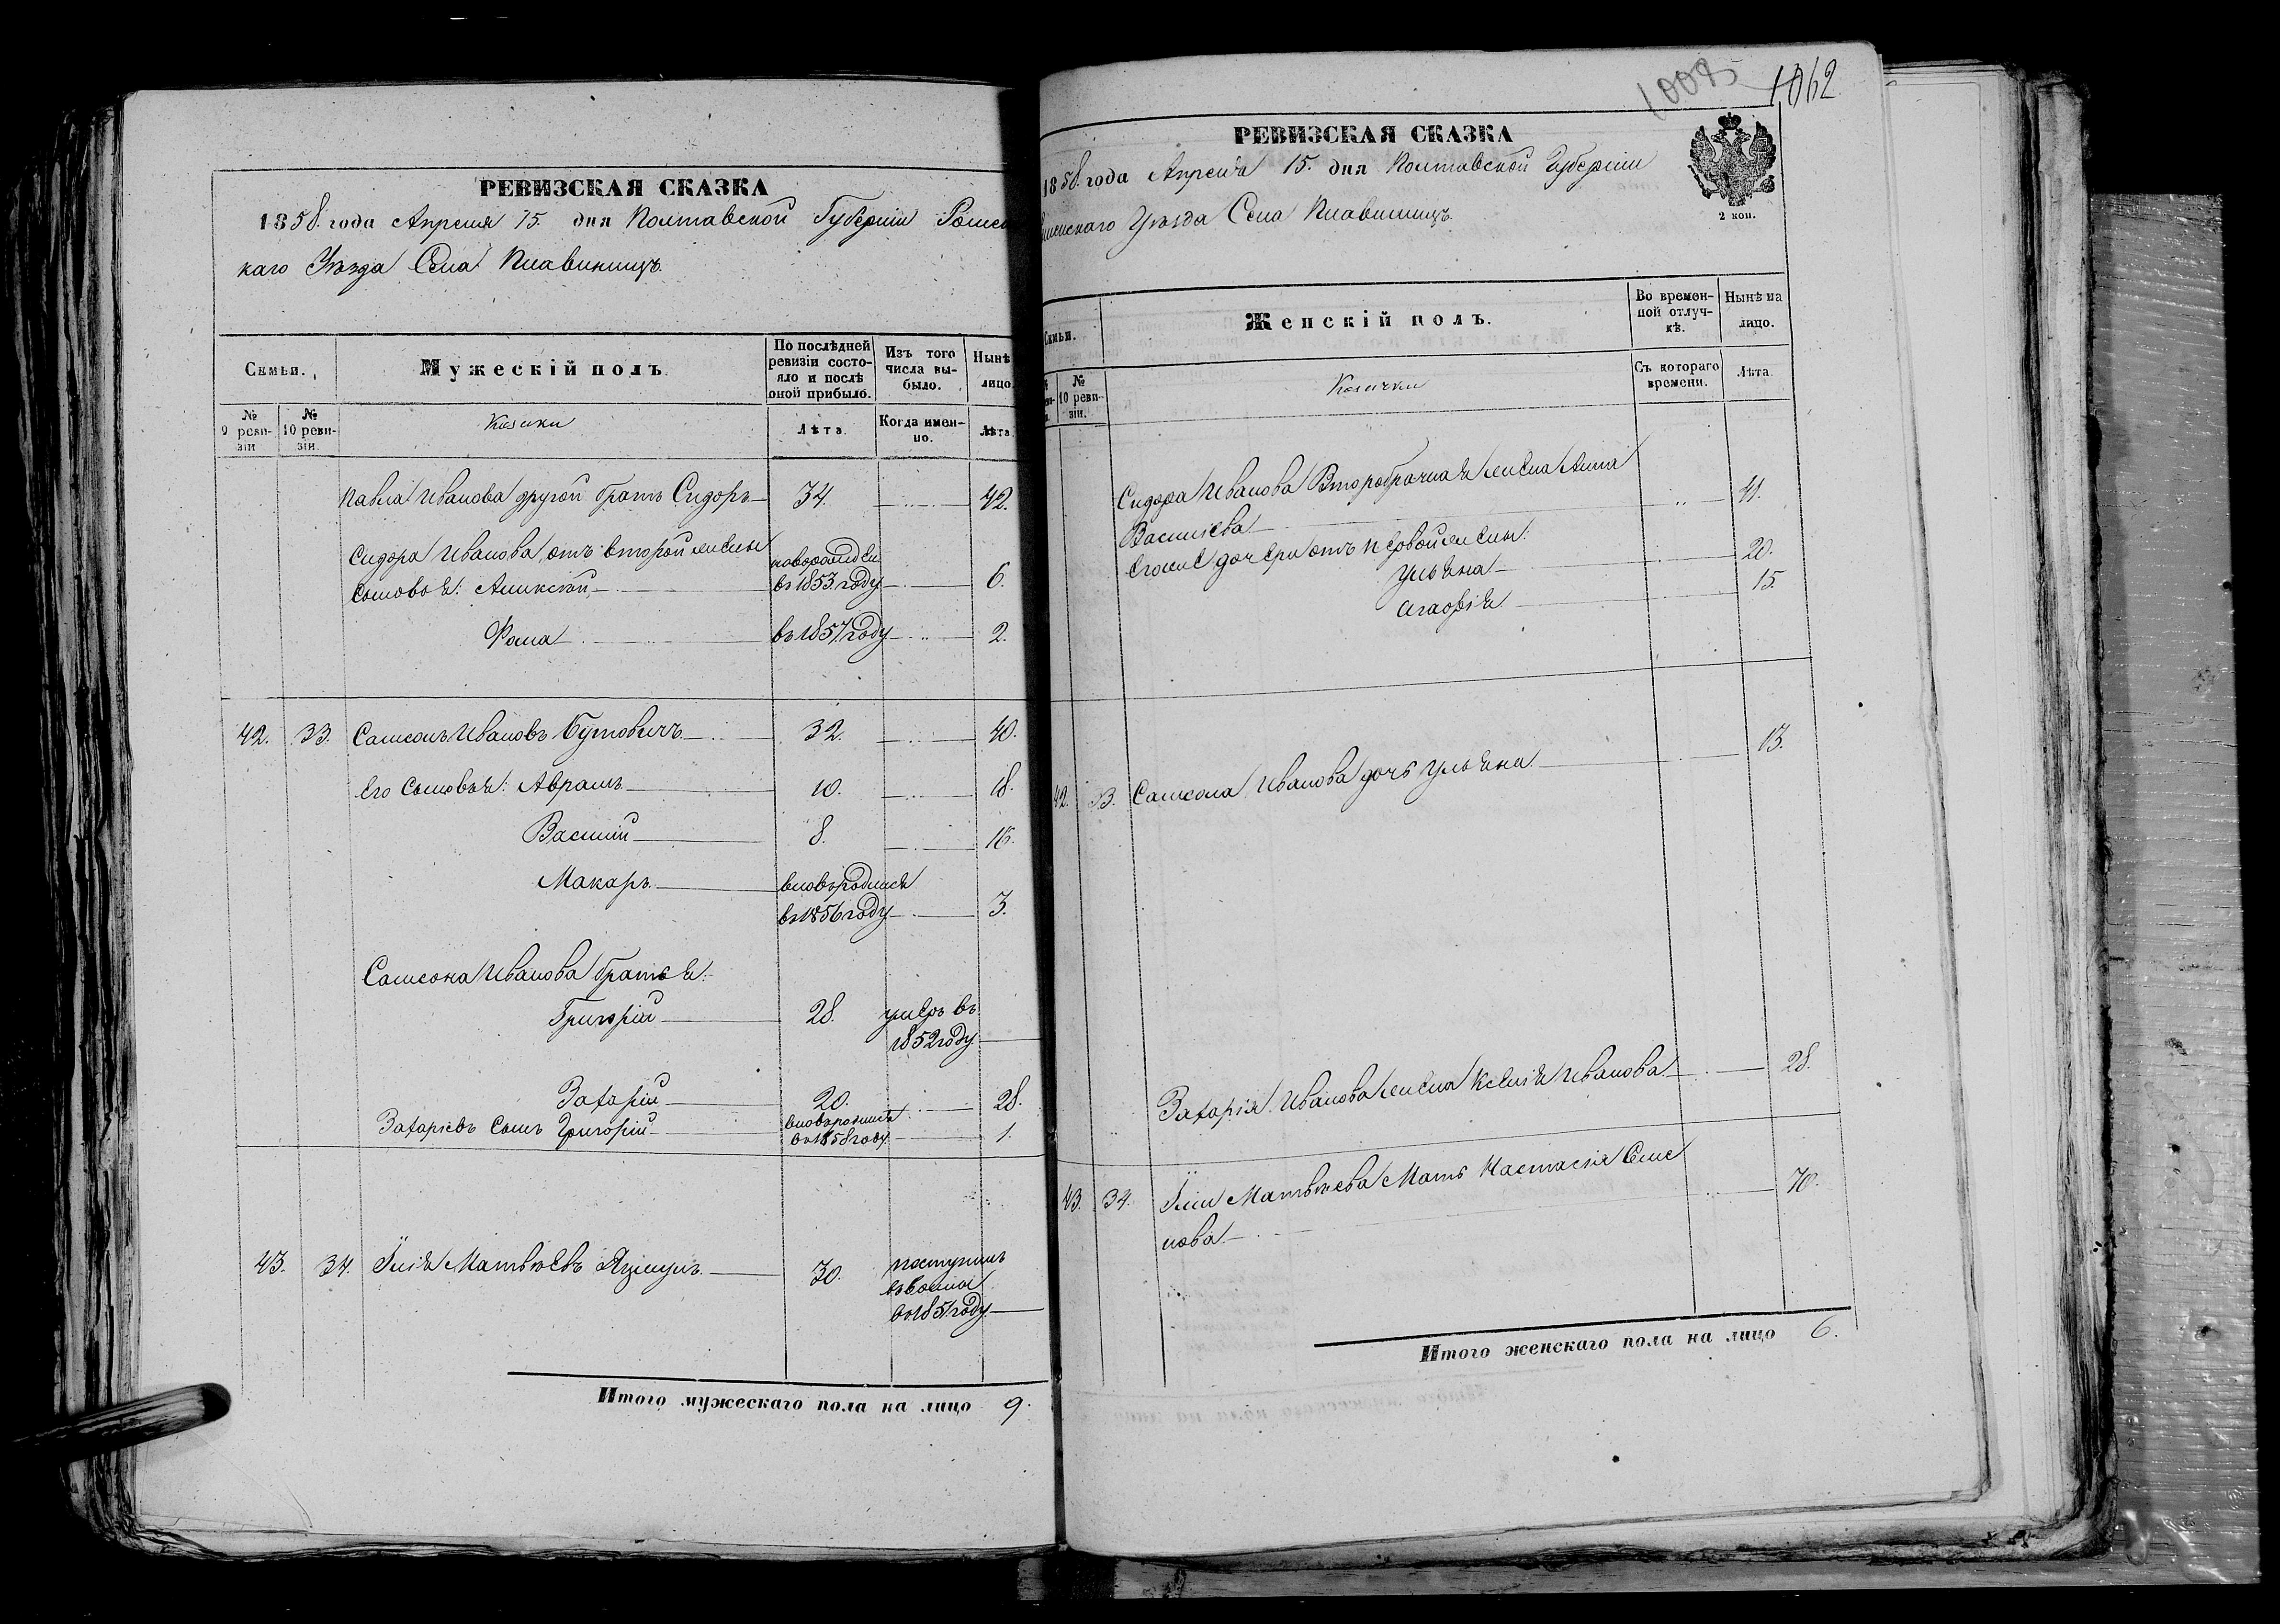 РЕВИЗСКАЯ СКАЗКА
1858. года Апреля 15. дня Полтавской Губернiи Ромен
каго Уѣзда Села Плавинищъ.
Семьи.
Мужескiй полъ.
По послѣдней ревизiи состо-
яло и послѣ оной прибыло.
Изъ того числа вы-
было.
Нынѣ
лицо.
№ 9 реви-
зiи
№ 10 реви-
зiи.
Козаки
Лѣта
Когда имен-
но.
Лѣта.
Павла Иванова другой братъ Сидоръ 34. 42.
Сидора Иванова отъ второй жены
сыновья: Алексѣй въ 1853 году 6.
Фома въ 1857 году 2.
42. 33. Самсонъ Ивановъ Бутовичъ 32. 40.
Его сыновья: Аврамъ 10. 18.
Василiй 8. 16.
Макаръ вновьродился
въ 1856 году 3.
Самсона Иванова братья:
Григорiй 28. умеръ въ
1852 году
Захарiй 20. 28.
Захарiевъ сынъ Григорiй вновьродился
въ 1858 году 1.
43. 34. Илiя Матвѣевъ 30. поступилъ
въ 1851 году
Итого мужескаго пола на лицо 9.
10085 1062
РЕВИЗСКАЯ СКАЗКА
1858. года Апреля 15. дня Полтавской Губернiи
менскаго Уѣзда Села Плавинищъ.
2 коп.
Семьи.
Женскiй полъ.
Во времен-
ной отлуч-
кѣ.
Нынѣ на
лицо.
№ 10 реви-
зiи.
Козачки
Съ котораго
времени.
Лѣта.
Сидора Иванова Второбрачная жена Анна
Василiева 41.
Его же дочери отъ первой жены:
Ульяна 20.
Агафiя 15.
42. 33. Самсона Иванова дочь Ульяна 13.
Захарiя Иванова жена Ксенiя Иванова 28.
43. 34. Илiи Матвѣева Мать Настасiя Семе
нова 70.
Итого женскаго пола на лицо 6.